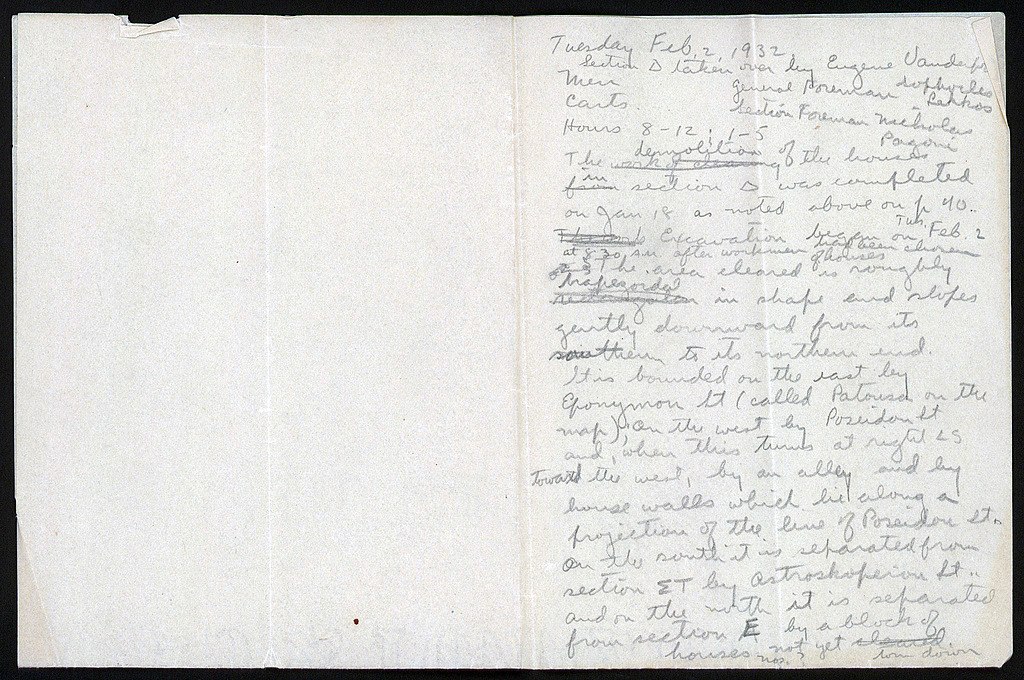 Tuesday Feb. 2, 1932.
Section Δ taken over by Eugene Vanderpo
Men General Foreman - Sophocles Lenkos
Carts. Section Foreman Nicholas Pagoni
Hours 8-12; 1-5
demolition
The work of clearing of the houses
in
from section Δ was completed
on Jan 18 as noted above on p 40.
Tues.
The work Excavation began on Feb. 2
at 8:30, after workmen had been chosen
of houses
The area cleared is roughly
trapezoidal
rectangular in shape and slopes
gently downward from its
southern to its northern end.
It is bounded on the east by
Eponymon St (called Patousa on the
map), on the west by Poseidon St
and, when this turns at right ∠s
toward the west, by an alley and by
house walls which lie along a
projection of the line of Poseidon St.
On the south it is separated from
section ΣΤ by Astroskopeion St..
and on the north it is separated
from section E by a block of
houses not yet cleared
nos.? torn down